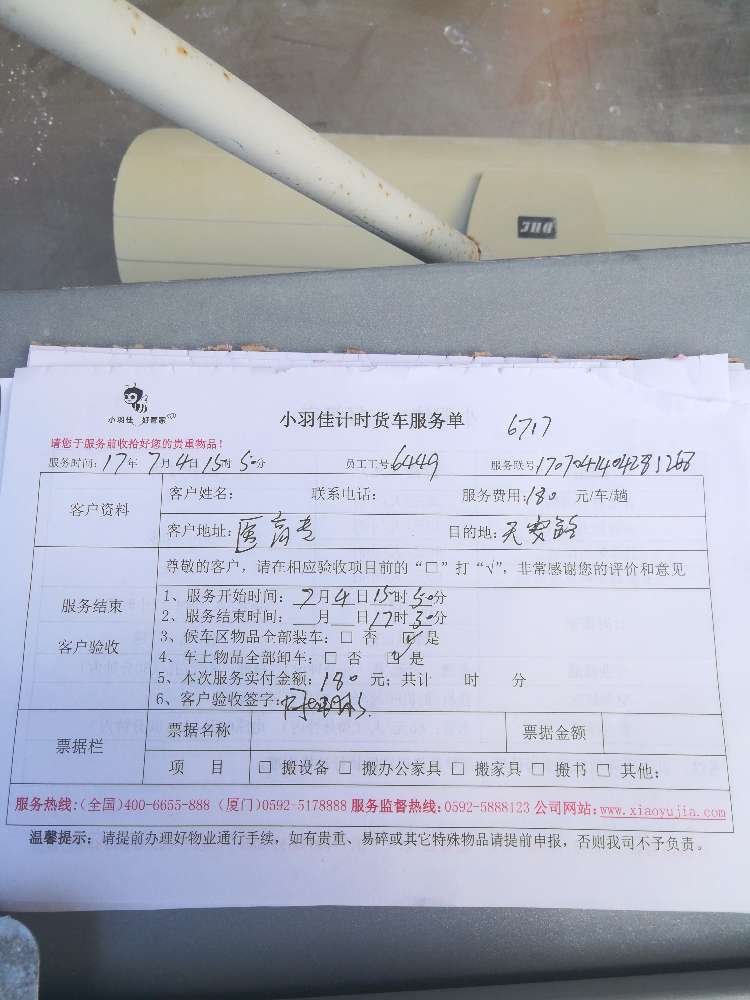 小羽佳 好管家
小羽佳计时货车服务单
6717
请您于服务前收拾好您的贵重物品！
服务时间：17年7月4日15时50分 员工工号：6449 服务联号1707041404281268
客户资料
客户姓名： 联系电话： 服务费用：180 元/车/趟
客户地址：医高专 目的地：
服务结束
客户验收
尊敬的客户，请在相应验收项目前的“□”打“√”，非常感谢您的评价和意见
1、服务开始时间：7月4日15时50分
2、服务结束时间：__月__日17时30分
3、候车区物品全部装车：□ 否 ☑ 是
4、车上物品全部卸车：□ 否 ☑ 是
5、本次服务实付金额：180 元；共计 时 分
6、客户验收签字：
票据栏
票据名称 票据金额
项 目 □ 搬设备 □ 搬办公家具 □ 搬家具 □ 搬书 □ 其他：
服务热线：（全国）400-6655-888（厦门）0592-5178888 服务监督热线：0592-5888123 公司网站：www.xiaoyujia.com
温馨提示：请提前办理好物业通行手续，如有贵重、易碎或其它特殊物品请提前申报，否则我司不予负责。